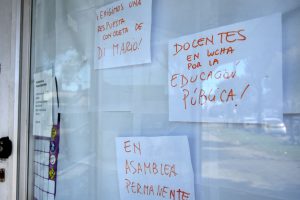 ¡EXIGIMOS UNA
RESPUESTA
CONCRETA DE
DI MARIO!
DOCENTES
EN LUCHA
POR LA
EDUCACIÓN
PÚBLICA!
EN
ASAMBLEA
PERMANENTE